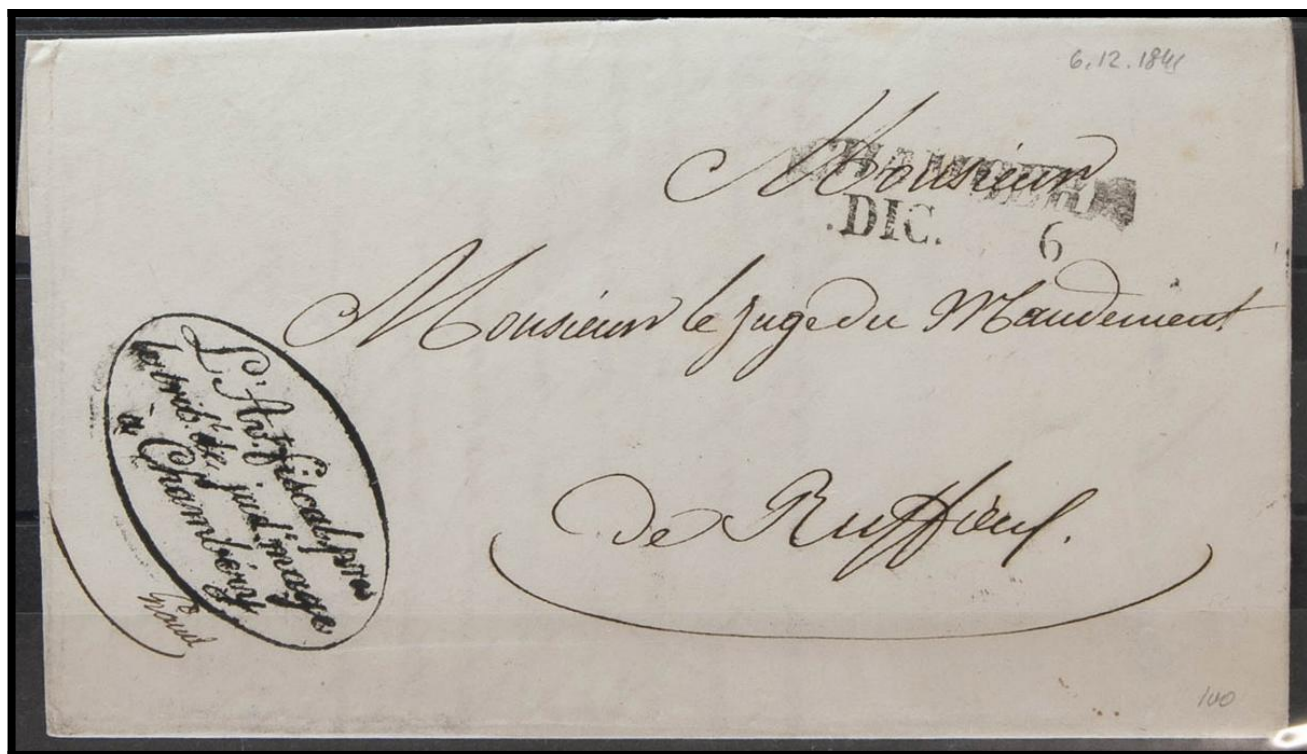 6.12.184
Monsieur
CHAMBERY
.DIC. 6
Monsieur le Juge du Mandement
de Ruffieux.
L'Av. fiscal près
le trib. de jud. mage
à Chambéry
100